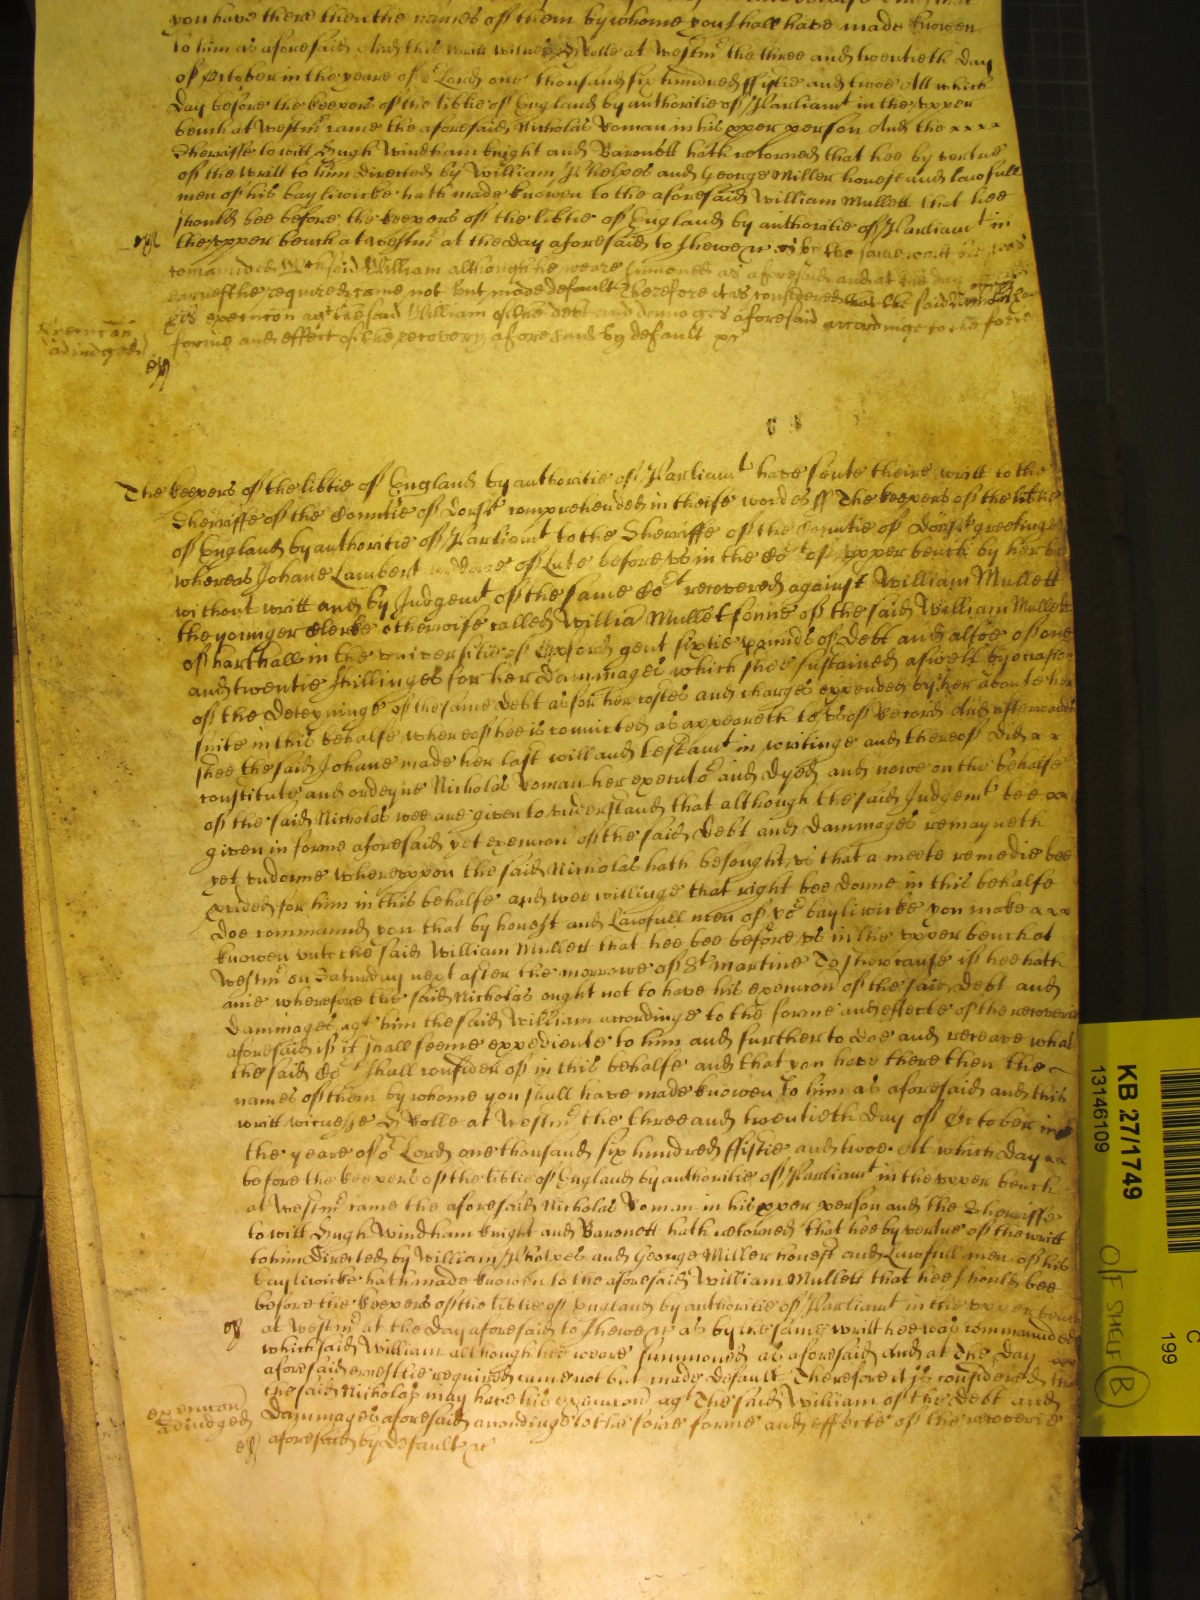 you have there then the names of them by whome you shall have made knowen
to him as aforesaid And this writt witnes H Rolle at Westmr the three and twentieth day
of October in the yeare of or Lord one thousand six hundred ffiftie and twoe Att which
day before the keepers of the libtie of England by authoritie of Parliamt in the upper
bench at Westmr came the aforesaid Nicholas Voman in his pper person And the
Sherriffe to witt Hugh Windham knight and Baronett hath retorned that hee by vertue
of the writt to him directed by William Phelpes and George Miller honest and lawfull
men of his bayliwicke hath made knowen to the aforesaid William Mullett that hee
should bee before the keepers of the libtie of England by authoritie of Parliamt in
the upper bench at Westmr at the day aforesaid to shewe &c as by the same writt hee was
comanded said William although he weare sumoned as aforesaid and at the day
earnestlie required came not but made default Therefore it is considered that the said Nicholas
his execucon agt the said William of the debt and damages aforesaid accordinge to the force
forme and effect of the recovery aforesaid by default &c
Execucon
adiudged
The keepers of the libtie of England by authoritie of Parliamt have sente theire writt to the
Sherriffe of the Countie of Dorst comprehended in theise wordes ss The keepers of the libtie
of England by authoritie of Parliamt to the Sherriffe of the Countie of Dorst greetinge
whereas Johane Lambert widdowe of Late before us in the Cot of upper bench by her bill
without writt and by Judgemt of the same Cot recovered against William Mullett
the younger Clerke otherwise called William Mullett sonne of the said William Mullett
of hart hall in the universitie of Oxford gent sixtie pounds of Debt and alsoe of one
and twentie shillinges for her Dammages which shee sustained aswell by ocasion
of the deteyninge of the same debt as for her costes and charges expended by her aboute her
suite in this behalfe whereof hee is convicted as appeareth to us of Record And afterwards
shee the said Johane made her last will and testamt in writinge and thereof did
constitute and ordeyne Nicholas Voman her executor and dyed and nowe on the behalfe
of the said Nicholas wee are given to understand that although the said Judgemt bee
given in forme aforesaid yet execucon of the said Debt and dammages remayneth
yet undonne whereuppon the said Nicholas hath besought us that a meete remedie bee
pvided for him in this behalfe and wee willinge that right bee donne in this behalfe
doe commaund you that by honest and Lawfull men of yor bayliwicke you make
knowen unto the said William Mullett that hee bee before us in the upper bench at
Westmr on Saturday next after the morrowe of St Martine To shew cause if hee hath
anie wherefore the said Nicholas ought not to have his execucon of the said Debt and
dammages agt him the said William accordinge to the forme and effecte of the recoverie
aforesaid if it shall seeme expediente to him and further to doe and receave what
the said Cot shall consider of in this behalfe and that you have there then the
names of them by whome you shall have made knowen to him as aforesaid and this
writt witnesse H Rolle at Westmr the three and twentieth day of October in
the yeare of or Lord one thousand six hundred ffiftie and twoe. At which day
before the keepers of the libtie of England by authoritie of Parliamt in the upper bench
at Westmr came the aforesaid Nicholas Voman in his pper person and the Sherriffe
to witt Hugh Windham knight and Baronett hath retorned that hee by vertue of the writt
to him directed by William Phelpes and George Miller honest and Lawfull men of his
bayliwicke hath made knowen to the aforesaid William Mullett that hee should bee
before the keepers of the libtie of England by authoritie of Parliamt in the upper bench
at Westmr at the day aforesaid to shewe &c as by the same writt hee was commaunded
which said William although hee weare summoned as aforesaid And at the day
aforesaid earnestlie required came not but made default Therefore it is considered that
the said Nicholas may have his execucon agt the said William of the debt and
Dammages aforesaid accordinge to the force forme and effecte of the recoverie
aforesaid by default &c
execucon
adiudged
KB 27/1749
13146109
O/F SHELF B
C
199